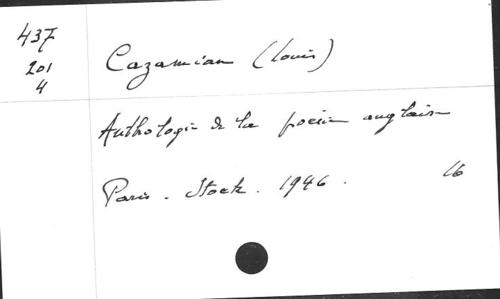 437
201
4
Cazamian (Louis)
Anthologie de la poésie anglaise
Paris. Stock. 1946. 16